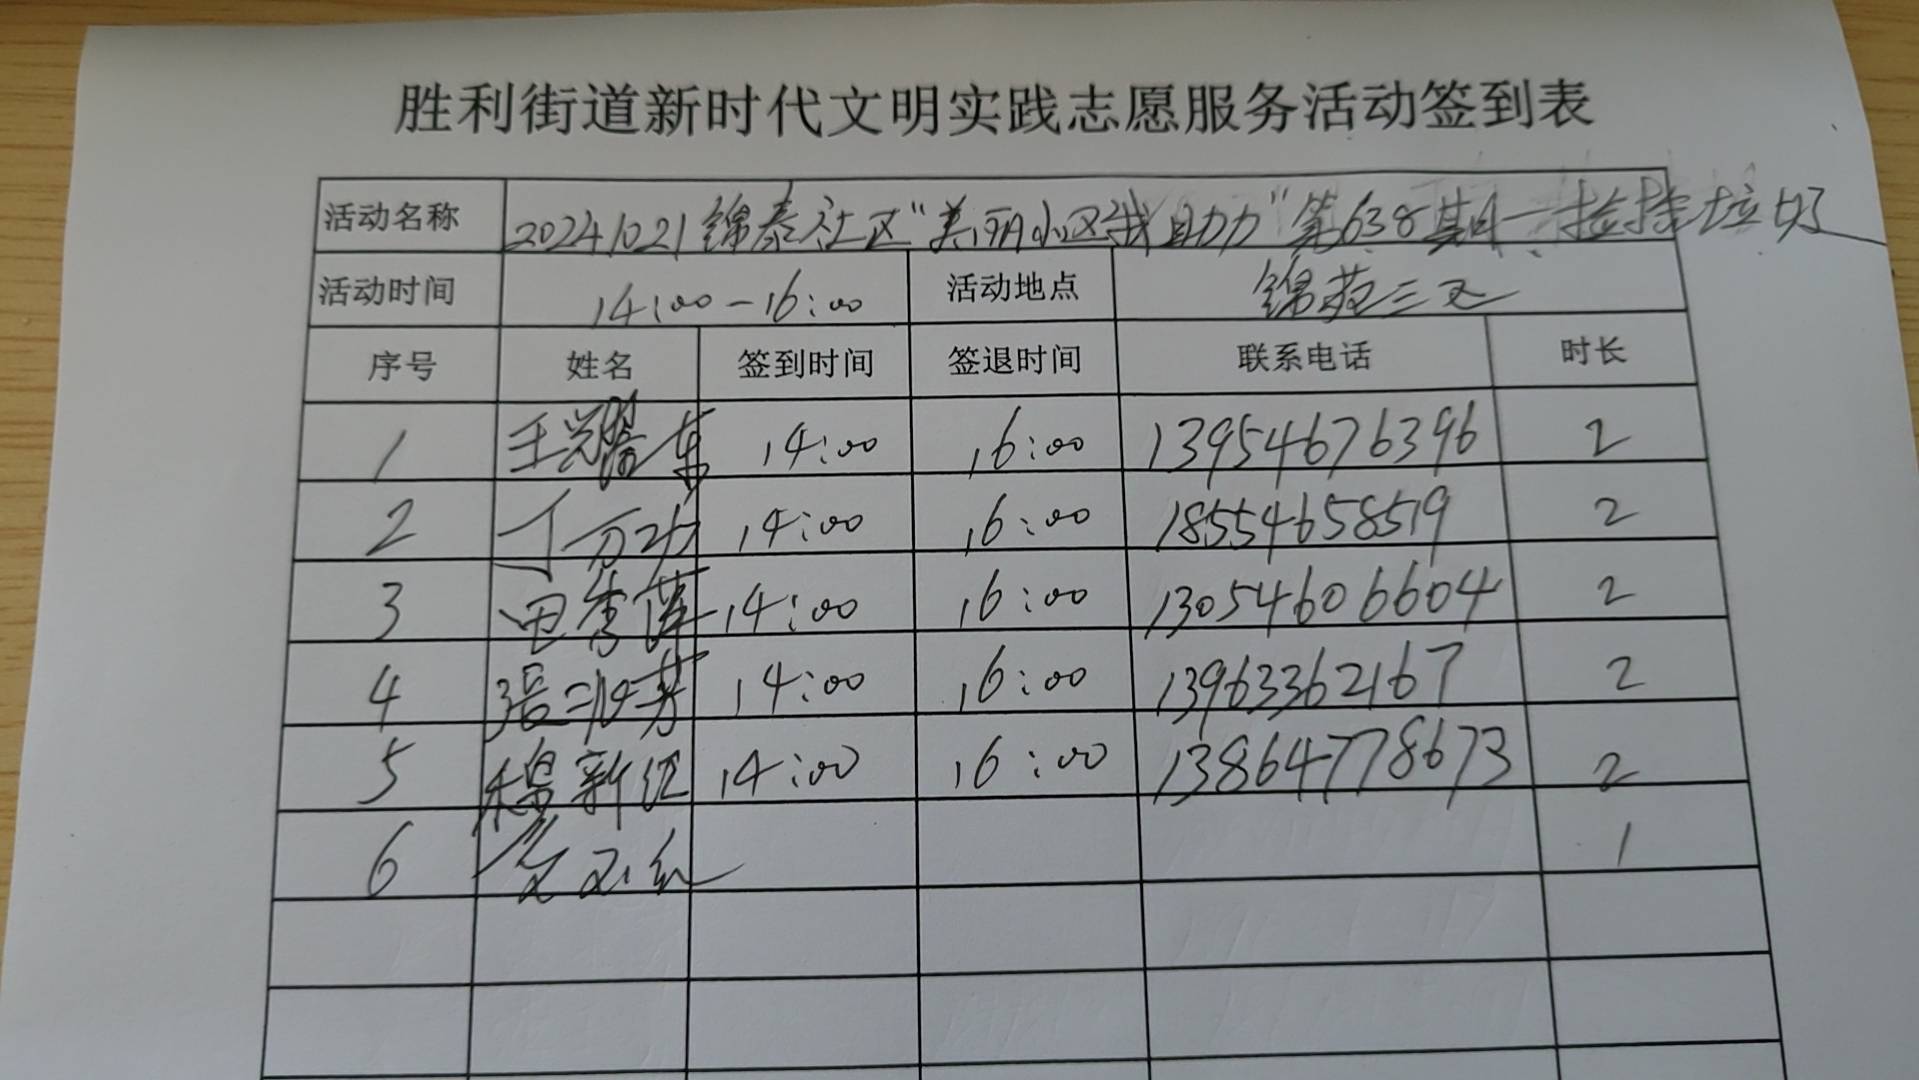 胜利街道新时代文明实践志愿服务活动签到表
活动名称 20241021锦泰社区“美丽小区我助力”第638期—捡拾垃圾
活动时间 14:00-16:00 活动地点 锦苑三区
序号 姓名 签到时间 签退时间 联系电话 时长
1 王耀东 14:00 16:00 13954676396 2
2 14:00 16:00 18554658519 2
3 田秀萍 14:00 16:00 13054606604 2
4 14:00 16:00 13963362167 2
5 穆新红 14:00 16:00 13864778673 2
6 1